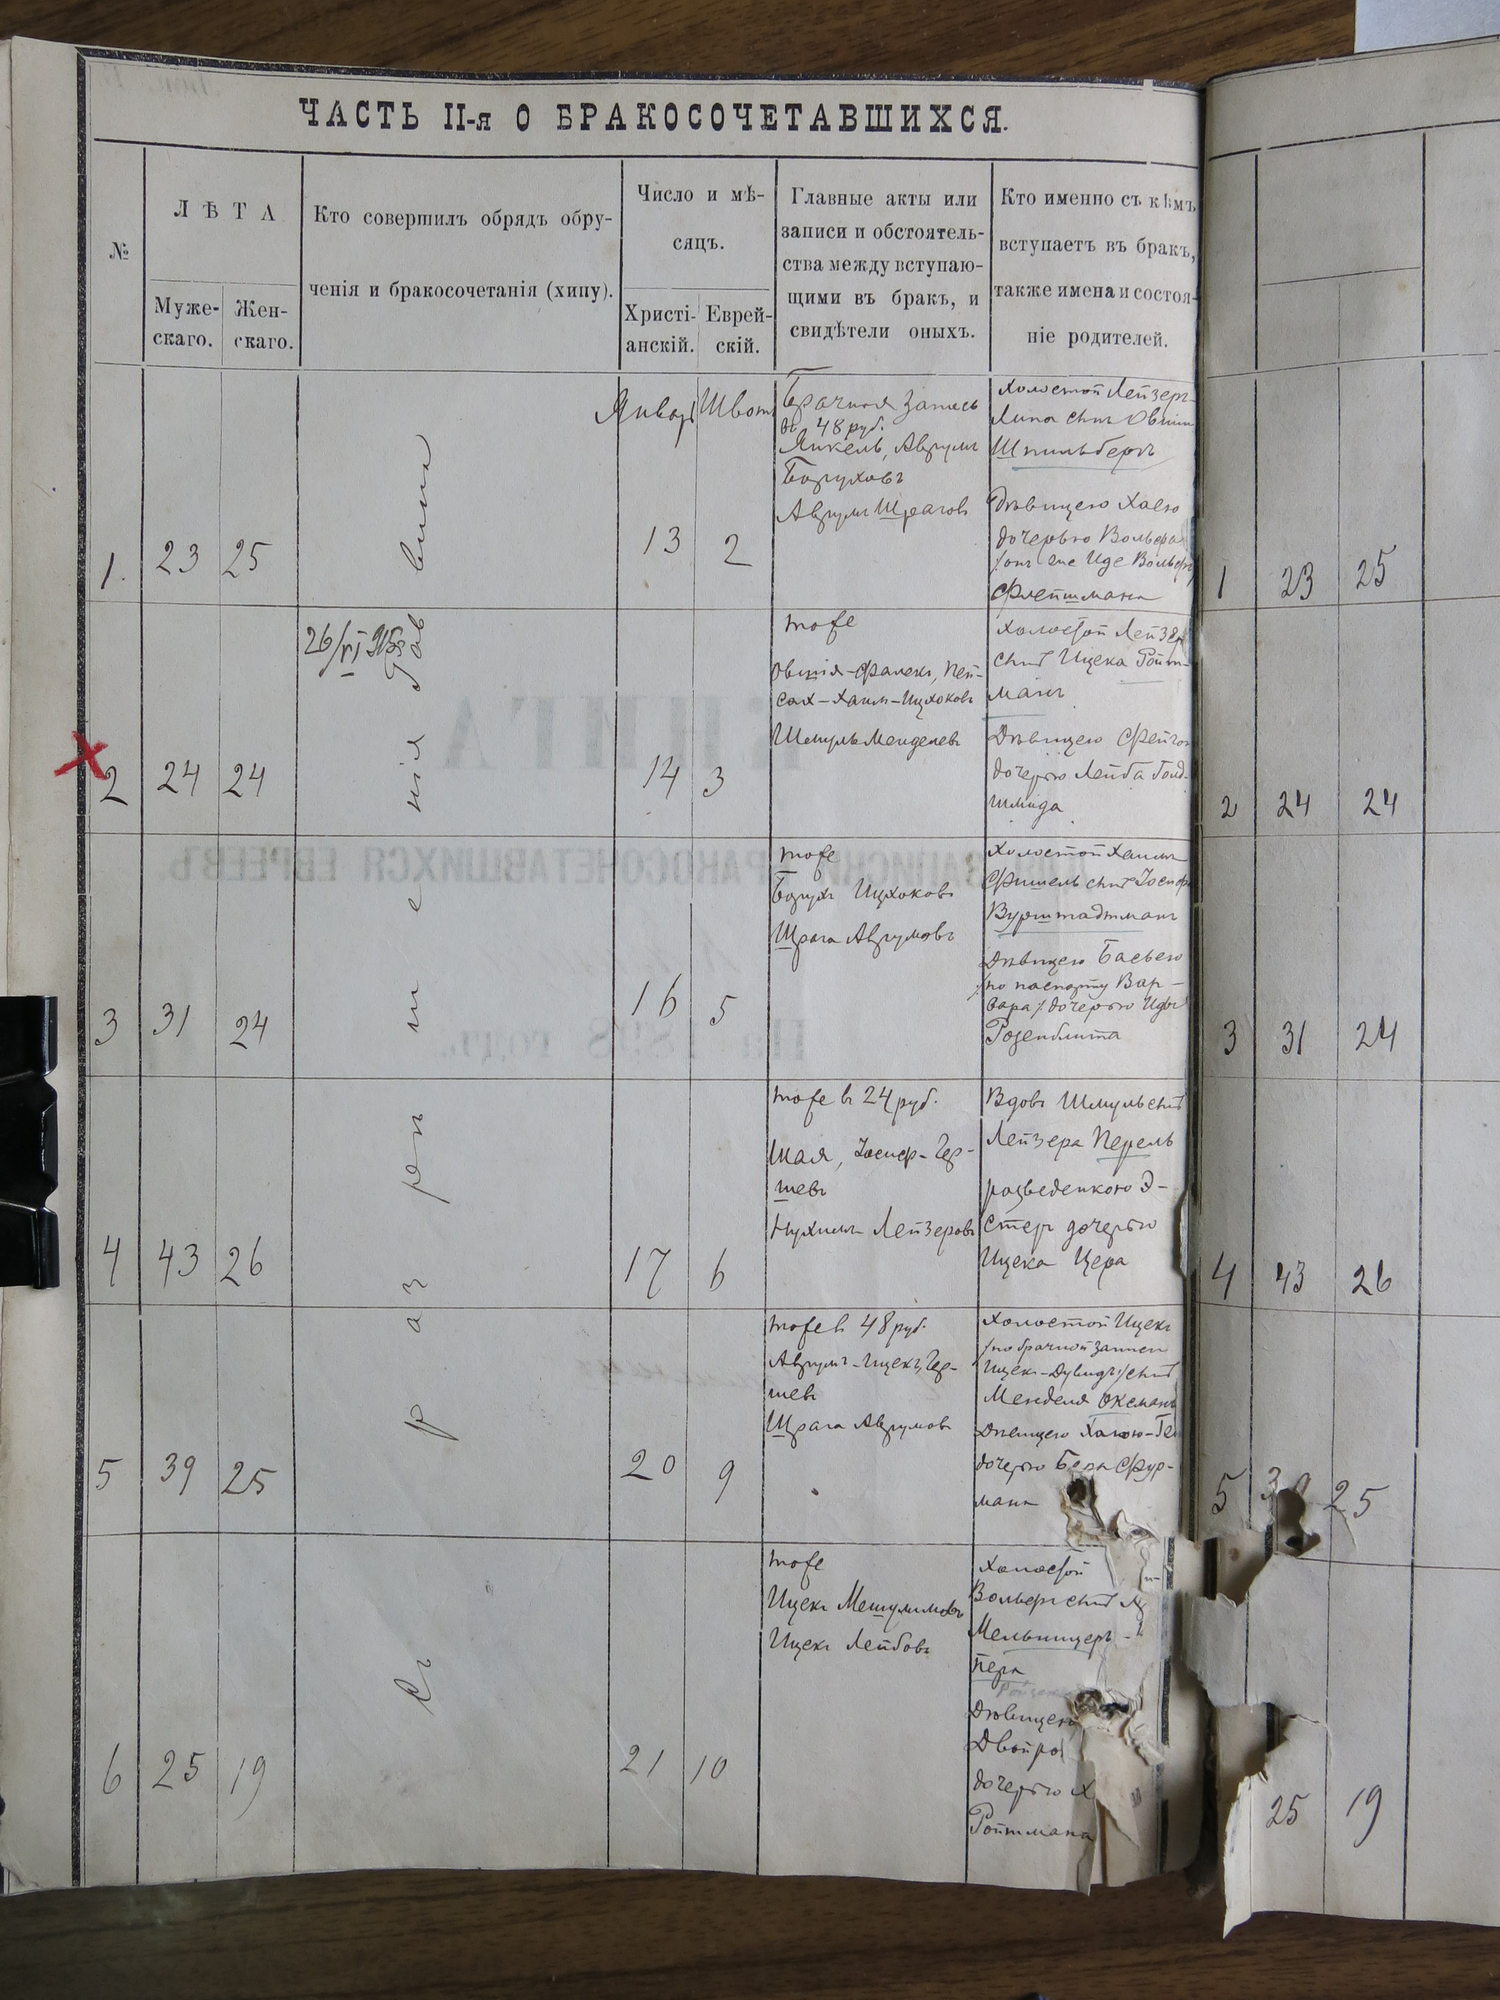 ЧАСТЬ II-я О БРАКОСОЧЕТАВШИХСЯ.
№
ЛѢТА
Муже-
скаго.
Жен-
скаго.
Кто совершилъ обрядъ обру-
ченія и бракосочетанія (хипу).
Число и мѣ-
сяцъ.
Христі-
анскій.
Еврей-
скій.
Главные акты или
записи и обстоятель-
ства между вступаю-
щими въ бракъ, и
свидѣтели оныхъ.
Кто именно съ кѣмъ
вступаетъ въ бракъ,
также имена и состоя-
ніе родителей.
Съ разрешенія Раввина
Январь Швот
1. 23 25
13 2
Брачная запись
въ 48 руб.
Янкель, Аврумъ
Боруховъ
Аврумъ Шраговъ
Холостой Лейзеръ-
Липа сынъ Овшии
Шпильбергъ
Дѣвицею Хаею
дочерью Вольфа
/онъ же Иде Вольфъ/
Флейшмана
1 23 25
26/VI 915
2 24 24
14 3
тоже
Овшія-Фалекъ, Пей-
сах-Хаим-Ицхоковъ
Шмуль Менделевъ
Холостой Лейзер
сынъ Ицека Ройт-
манъ
Дѣвицею Фейгою
дочерью Лейба Голд-
шмида
2 24 24
3 31 24
16 5
тоже
Борухъ Ицхоковъ
Шрага Аврумовъ
Холостой Хаимъ
Фишель сынъ Іосифа
Вурштадтманъ
Дѣвицею Басьею
/по паспорту Вар-
вара/ дочерью Иды
Розенблита
3 31 24
4 43 26
17 6
тоже въ 24 руб.
Шая, Іосиф-Гер-
шевъ
Нухимъ Лейзеровъ
Вдовъ Шмуль сынъ
Лейзера Перель
разведенкою Э-
стеръ дочерью
Ицека Цера
4 43 26
5 39 25
20 9
тоже въ 48 руб.
Аврумъ-Ицекъ, Гер-
шевъ
Шрага Аврумовъ
Холостой Ицекъ
/по брачной записи
Ицекъ-Дувидъ/ сынъ
Менделя Оксманъ
Дѣвицею Хаею-
дочерью Бера Фур-
мана
5 39 25
6 25 19
21 10
тоже
Ицекъ Мешулимовъ
Ицекъ Лейбовъ
Холостой
Вольфъ сынъ
Мельницеръ-
Дѣвицею
Двойрою
дочерью Х
Ройтмана
25 19